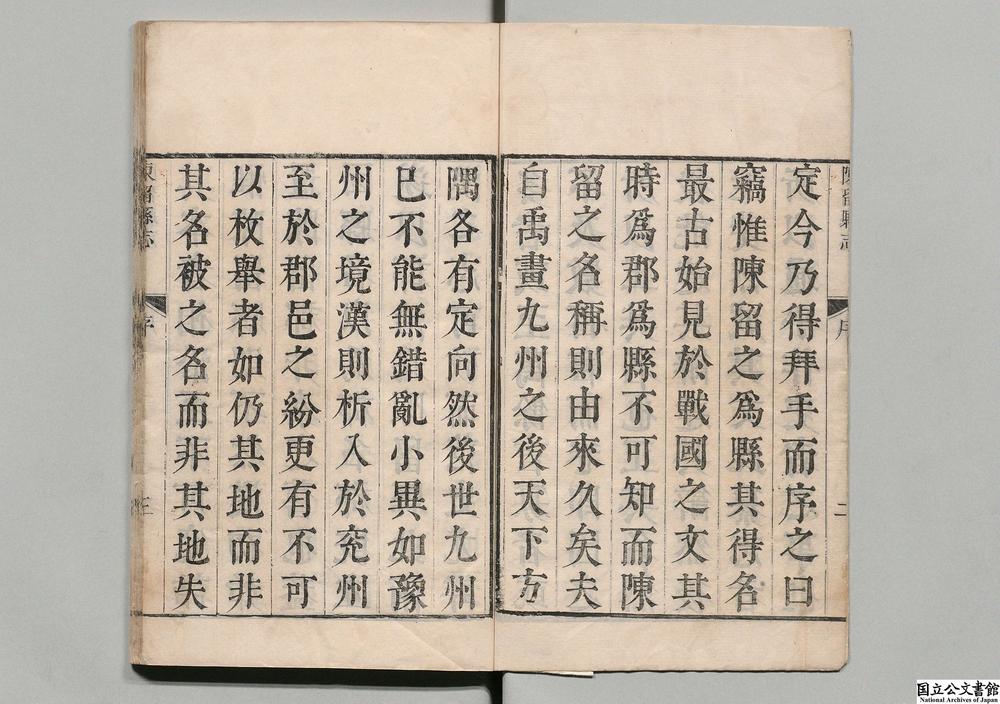 陳留縣志
序
二
定今乃得拜手而序之曰
竊惟陳留之爲縣其得名
最古始見於戰國之文其
時爲郡爲縣不可知而陳
留之名稱則由來久矣夫
自禹畫九州之後天下方
隅各有定向然後世九州
已不能無錯亂小異如豫
州之境漢則析入於兖州
至於郡邑之紛更有不可
以枚舉者如仍其地而非
其名被之名而非其地失
陳留縣志
序
三
国立公文書館
National Archives of Japan